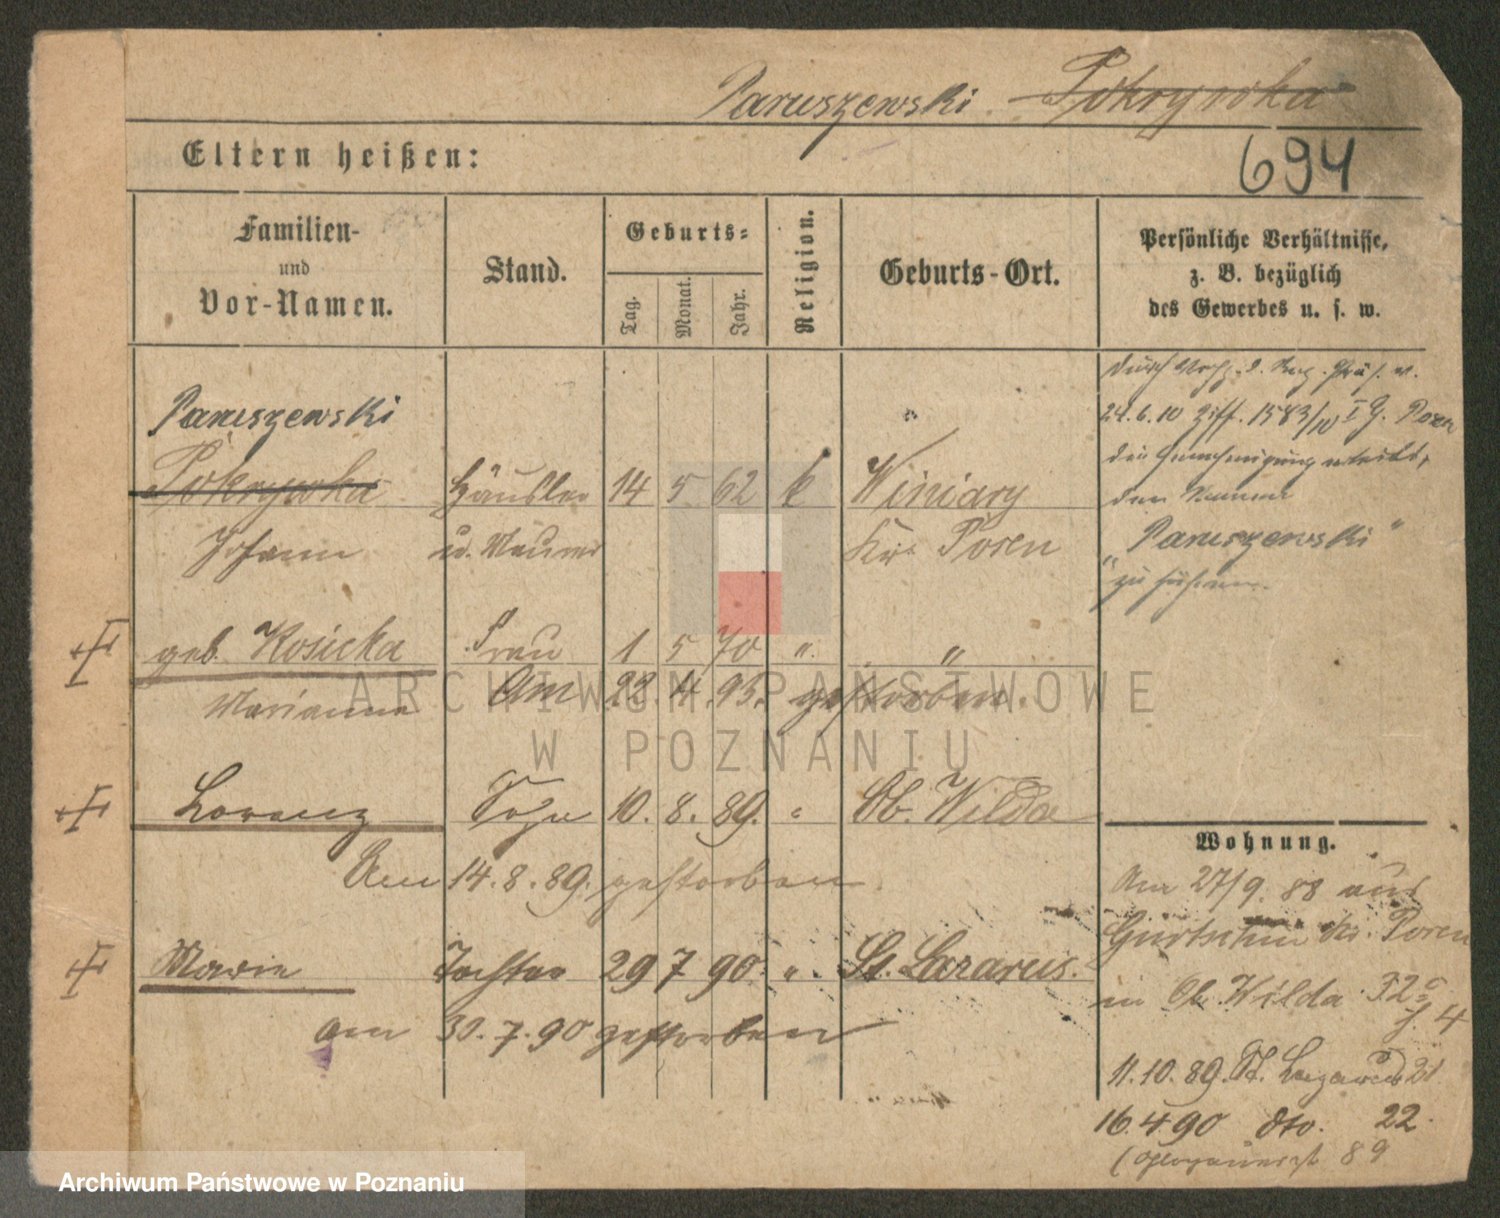 Paruszewski Pokrywka
Eltern heißen:
694
Familien-
und
Vor-Namen.
Stand.
Geburts-
Tag.
Monat.
Jahr.
Religion.
Geburts-Ort.
Persönliche Verhältnisse,
z. B. bezüglich
des Gewerbes u. s. w.
Paruszewski
Pokrywka Häusler 14 5 62 k Winiary
Johann u. Maurer Krs Posen
geb. Kosicka Frau 1 5 70 " "
Marianna Am 23. 4. 93. gestorben.
Lorenz Sohn 10. 8. 89. " Ob. Wilda
Am 14. 8. 89. gestorben.
Marie Tochter 29 7 90 " St. Lazarus.
am 30. 7. 90 gestorben
durch Verfg. d. Reg. Präs. v.
24.6.10 1583/10 I G. Posen
die Genehmigung erteilt,
den Namen
"Paruszewski"
zu führen.
Wohnung.
Am 27/9. 88 aus
Gurtschin Kr. Posen
in Ob. Wilda 32
11.10.89. St. Lazarus 21
16.4.90 dto. 22.
89
ARCHIWUM PAŃSTWOWE
W POZNANIU
Archiwum Państwowe w Poznaniu